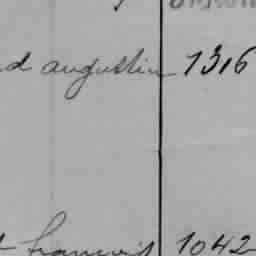 d augustin 1316
t françois 1042